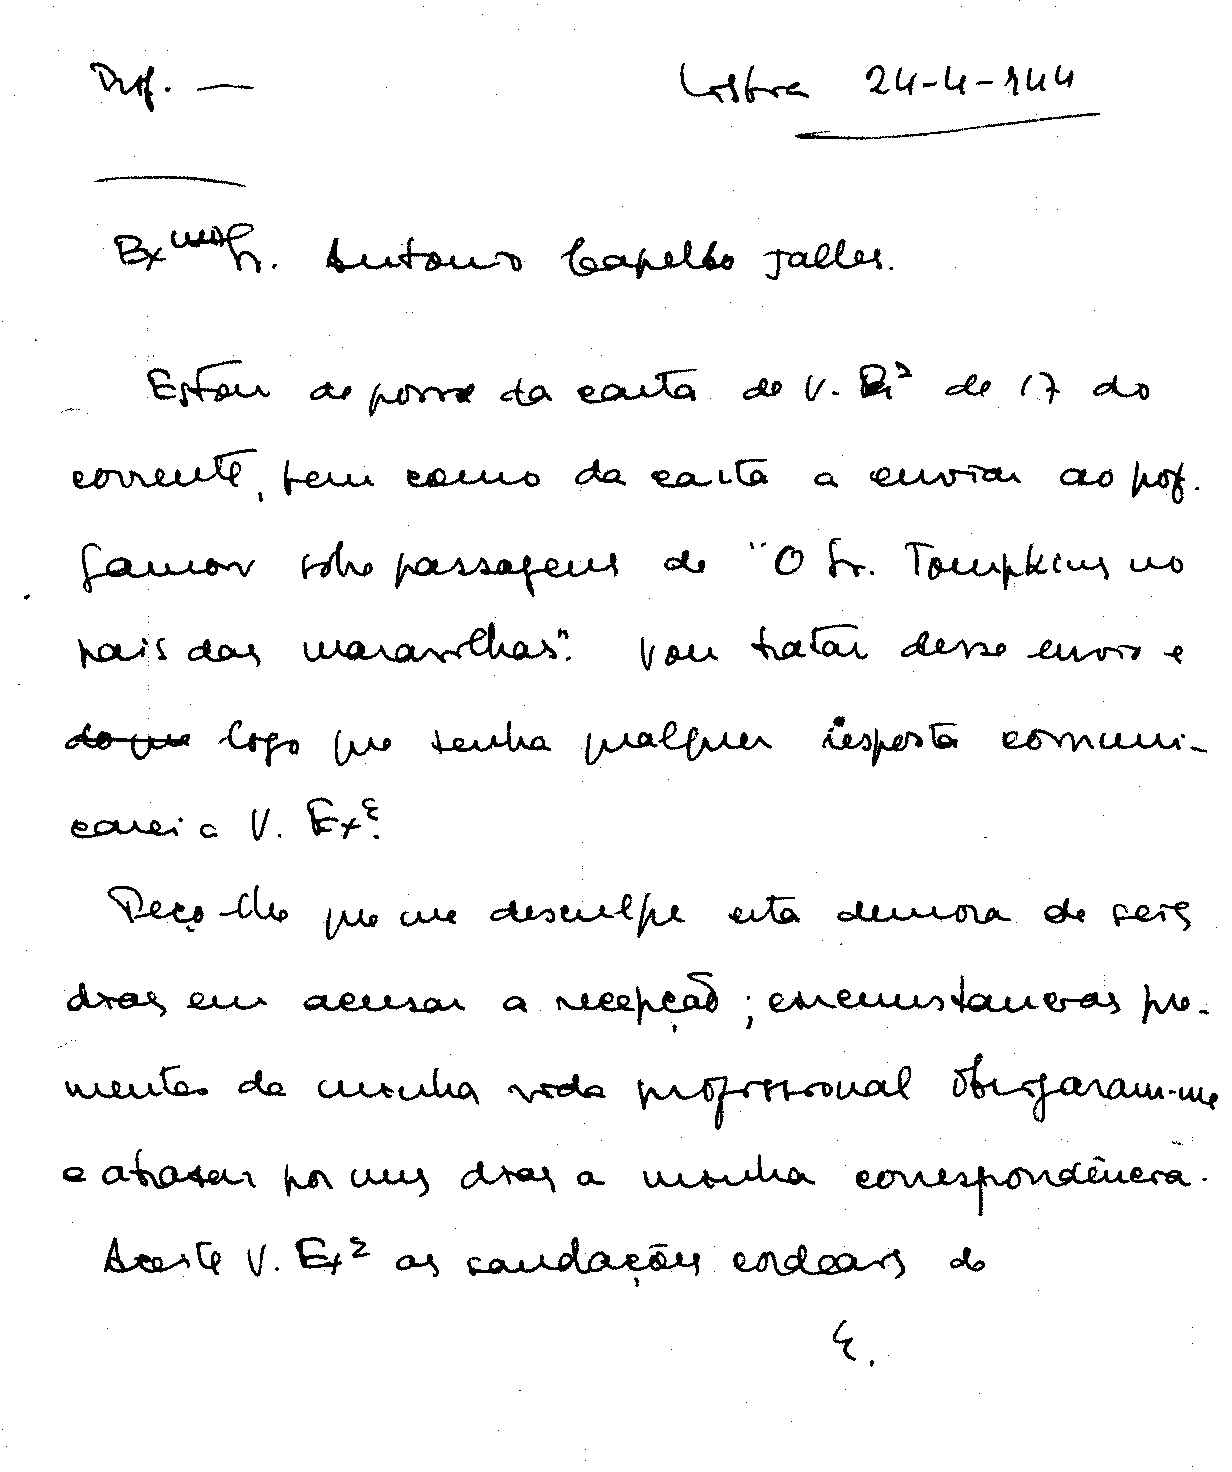 Prof. — Lisboa 24-4-944
Exmo Sr. Antonio Capelto Talles.
Estou de posse da carta de V. Exª de 17 do
corrente, bem como da carta a enviar ao prof.
Gamow sobre passagens de "O Sr. Tompkins no
pais das maravilhas". Vou tratar desse envio e
logo que tenha qualquer resposta comuni-
carei a V. Exª.
Peço-lhe que me desculpe esta demora de seis
dias em acusar a recepção; circunstancias pre-
mentes da minha vida profissional obrigaram-me
a atrasar por uns dias a minha correspondência.
Aceite V. Exª as saudações cordeais do